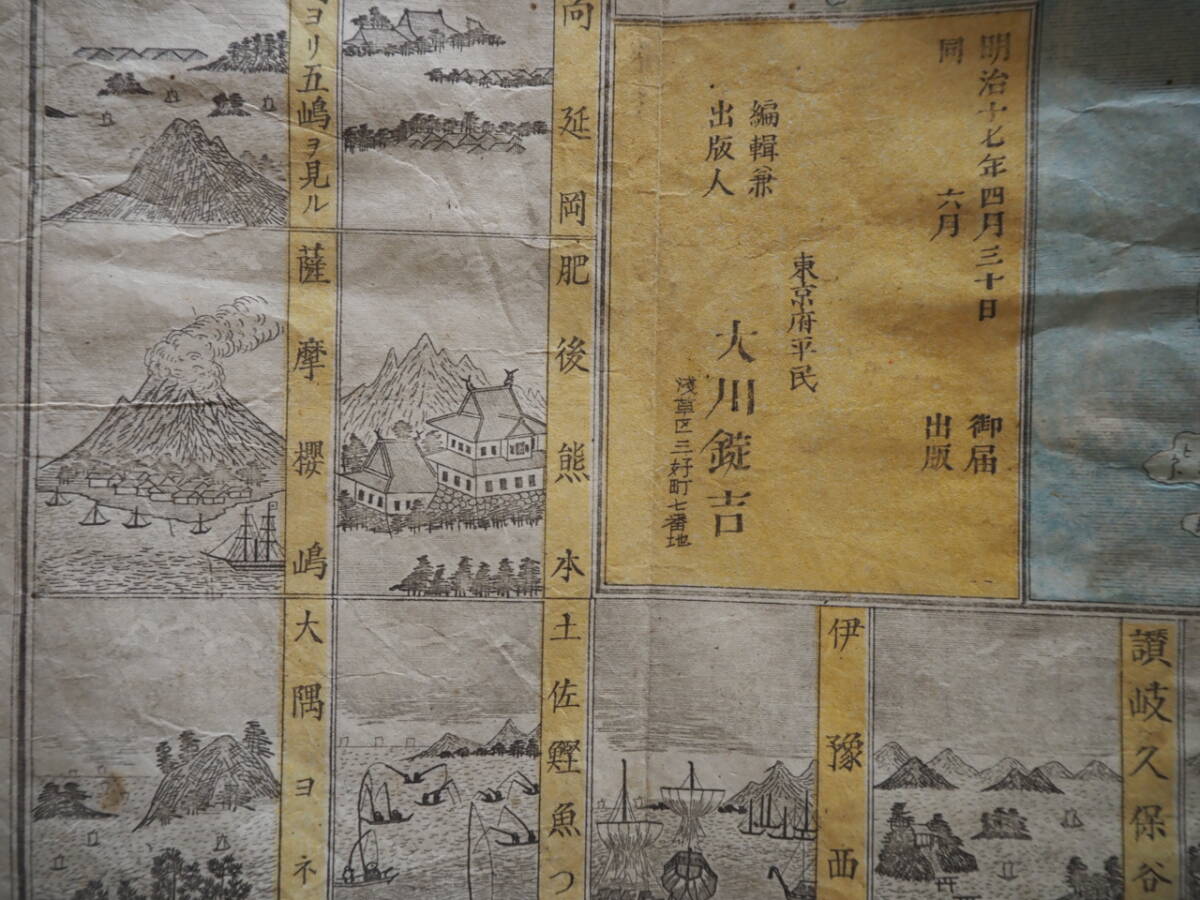 明治十七年四月三十日 御届
同 六月 出版
編輯兼
出版人
東京府平民
大川錠吉
浅草区三好町七番地
向延岡
ヨリ五嶋ヲ見ル
肥後熊本
薩摩櫻嶋
讃岐久保谷
伊豫西
土佐鰹魚つ
大隅ヨネ